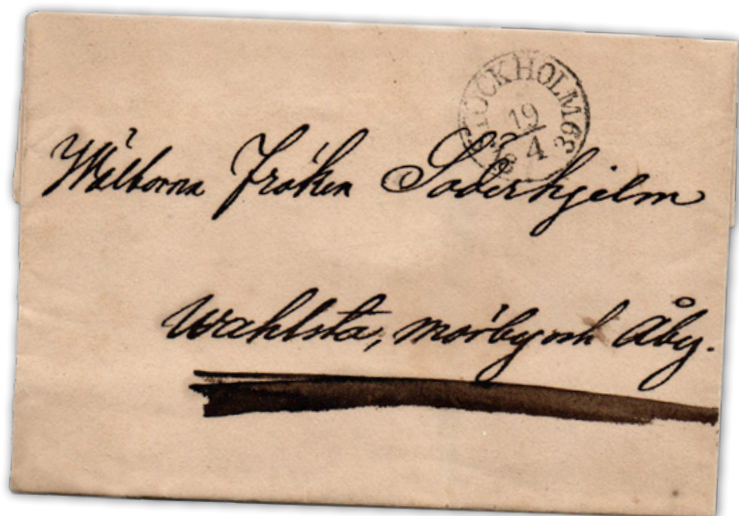 STOCKHOLM
19
4
39
Wälborna Fröken Söderhjelm
Wahlsta, Mörby och Åby.